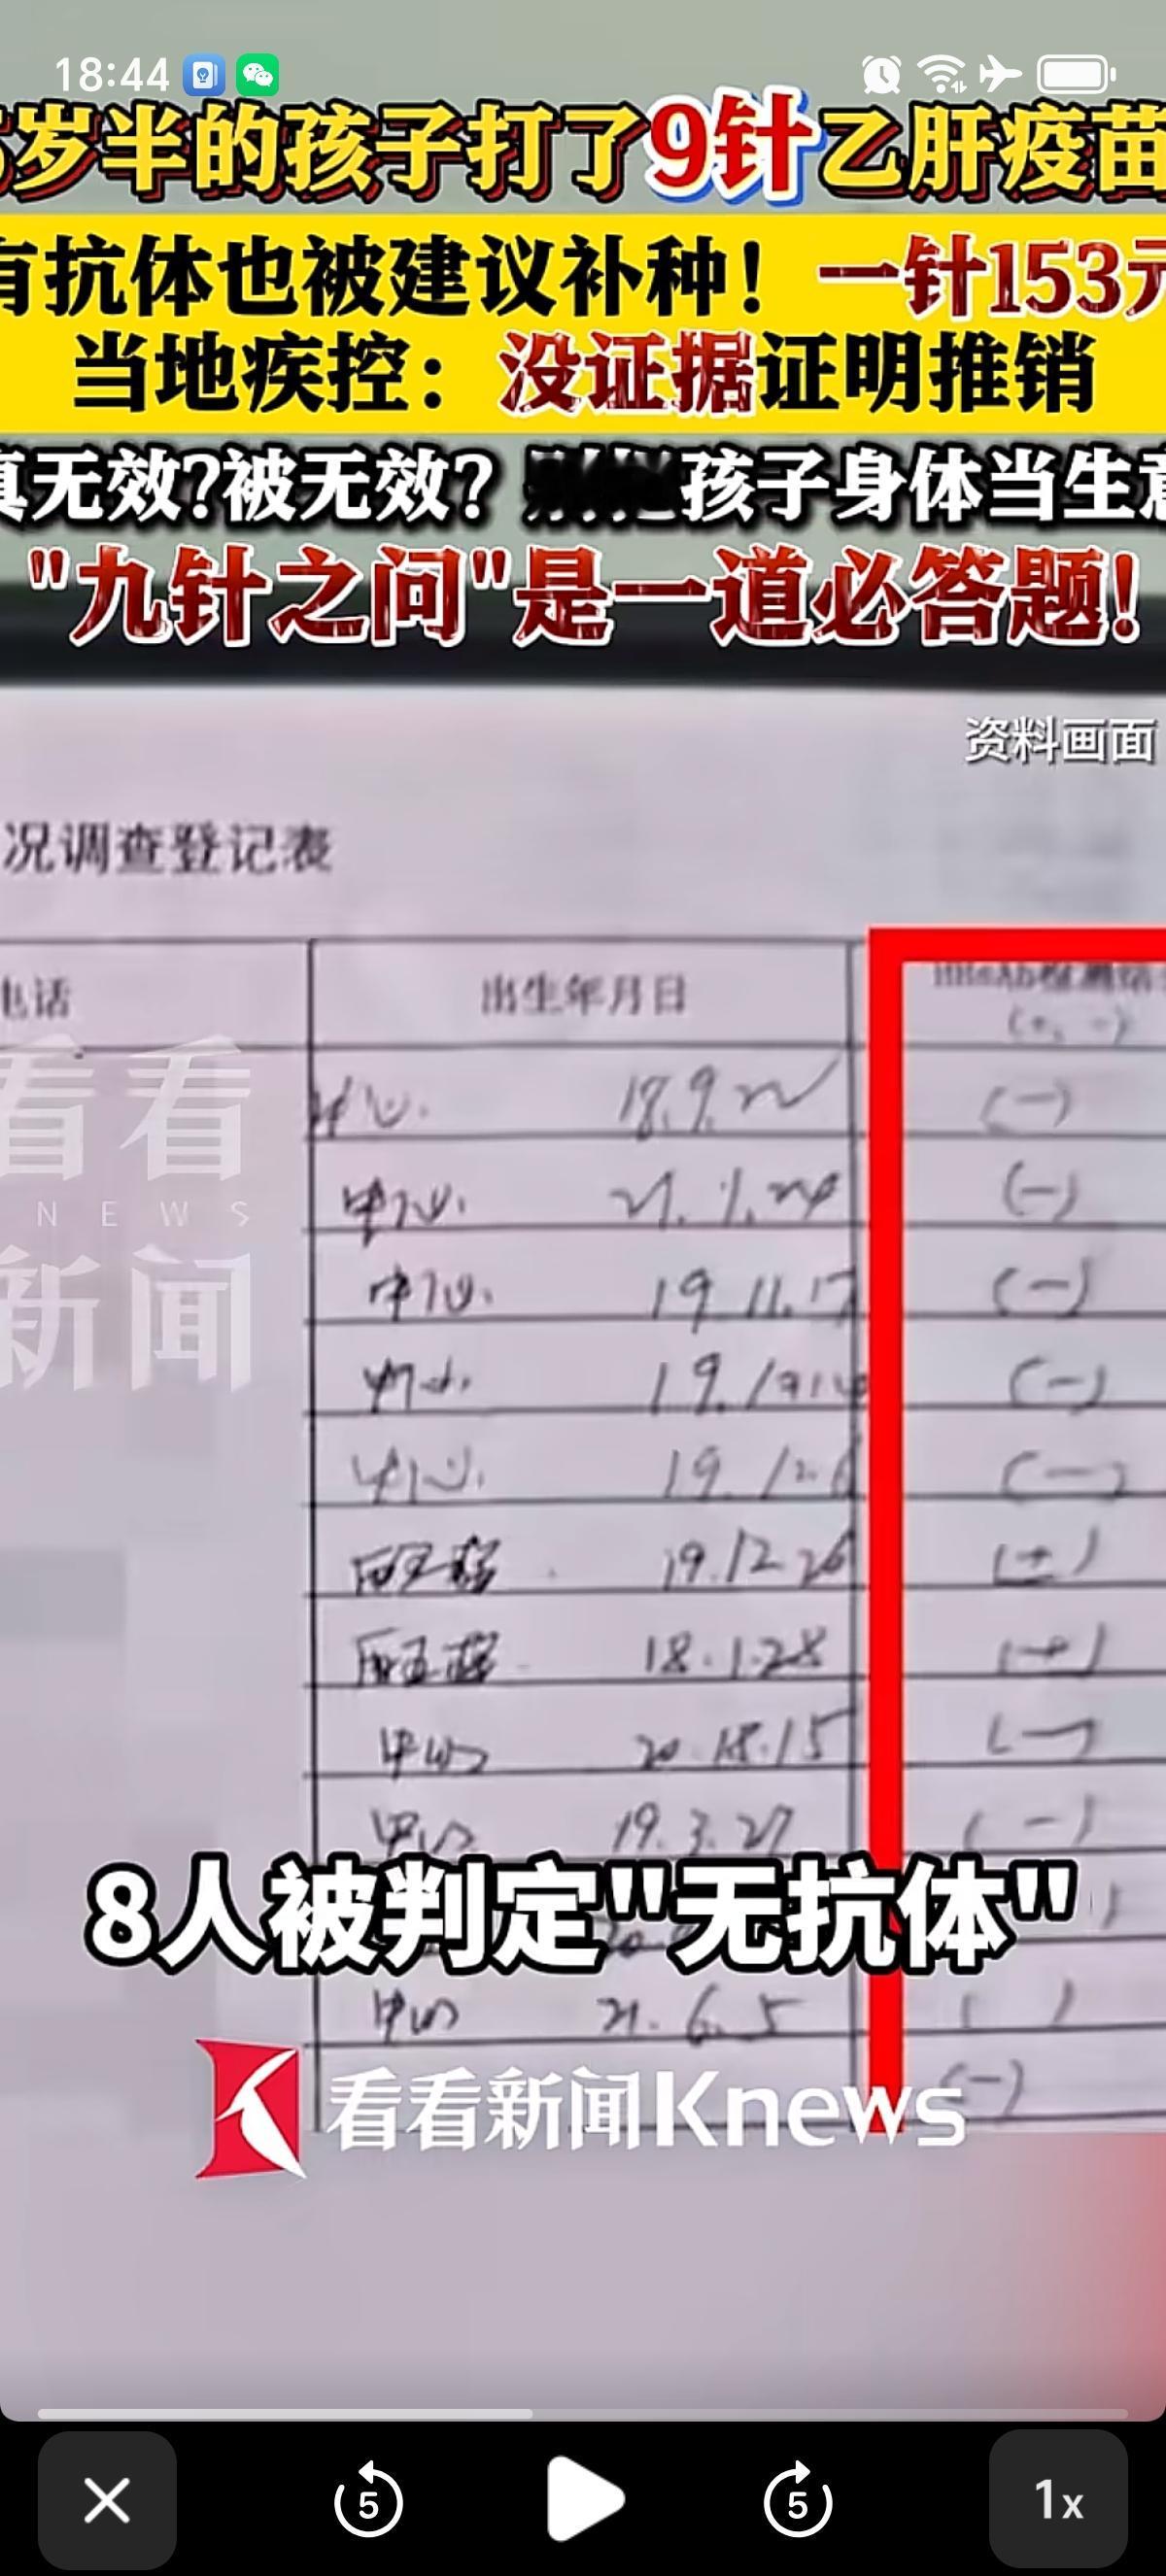 18:44
岁半的孩子打了9针乙肝疫苗
有抗体也被建议补种！一针153元
当地疾控：没证据证明推销
真无效?被无效? 孩子身体当生意
"九针之问"是一道必答题!
资料画面
况调查登记表
电话 出生年月日
(+, -)
18.9. (-)
中心 21.1.24 (-)
中心. 19.11.17 (-)
19. (-)
19.12.6 (-)
19.12.26 (+)
18.1.28 (+)
15 (-)
19.3.27 (-)
8人被判定"无抗体"
21.6.5 ( )
(-)
看看
NEWS
新闻
看看新闻Knews
5
5
1x